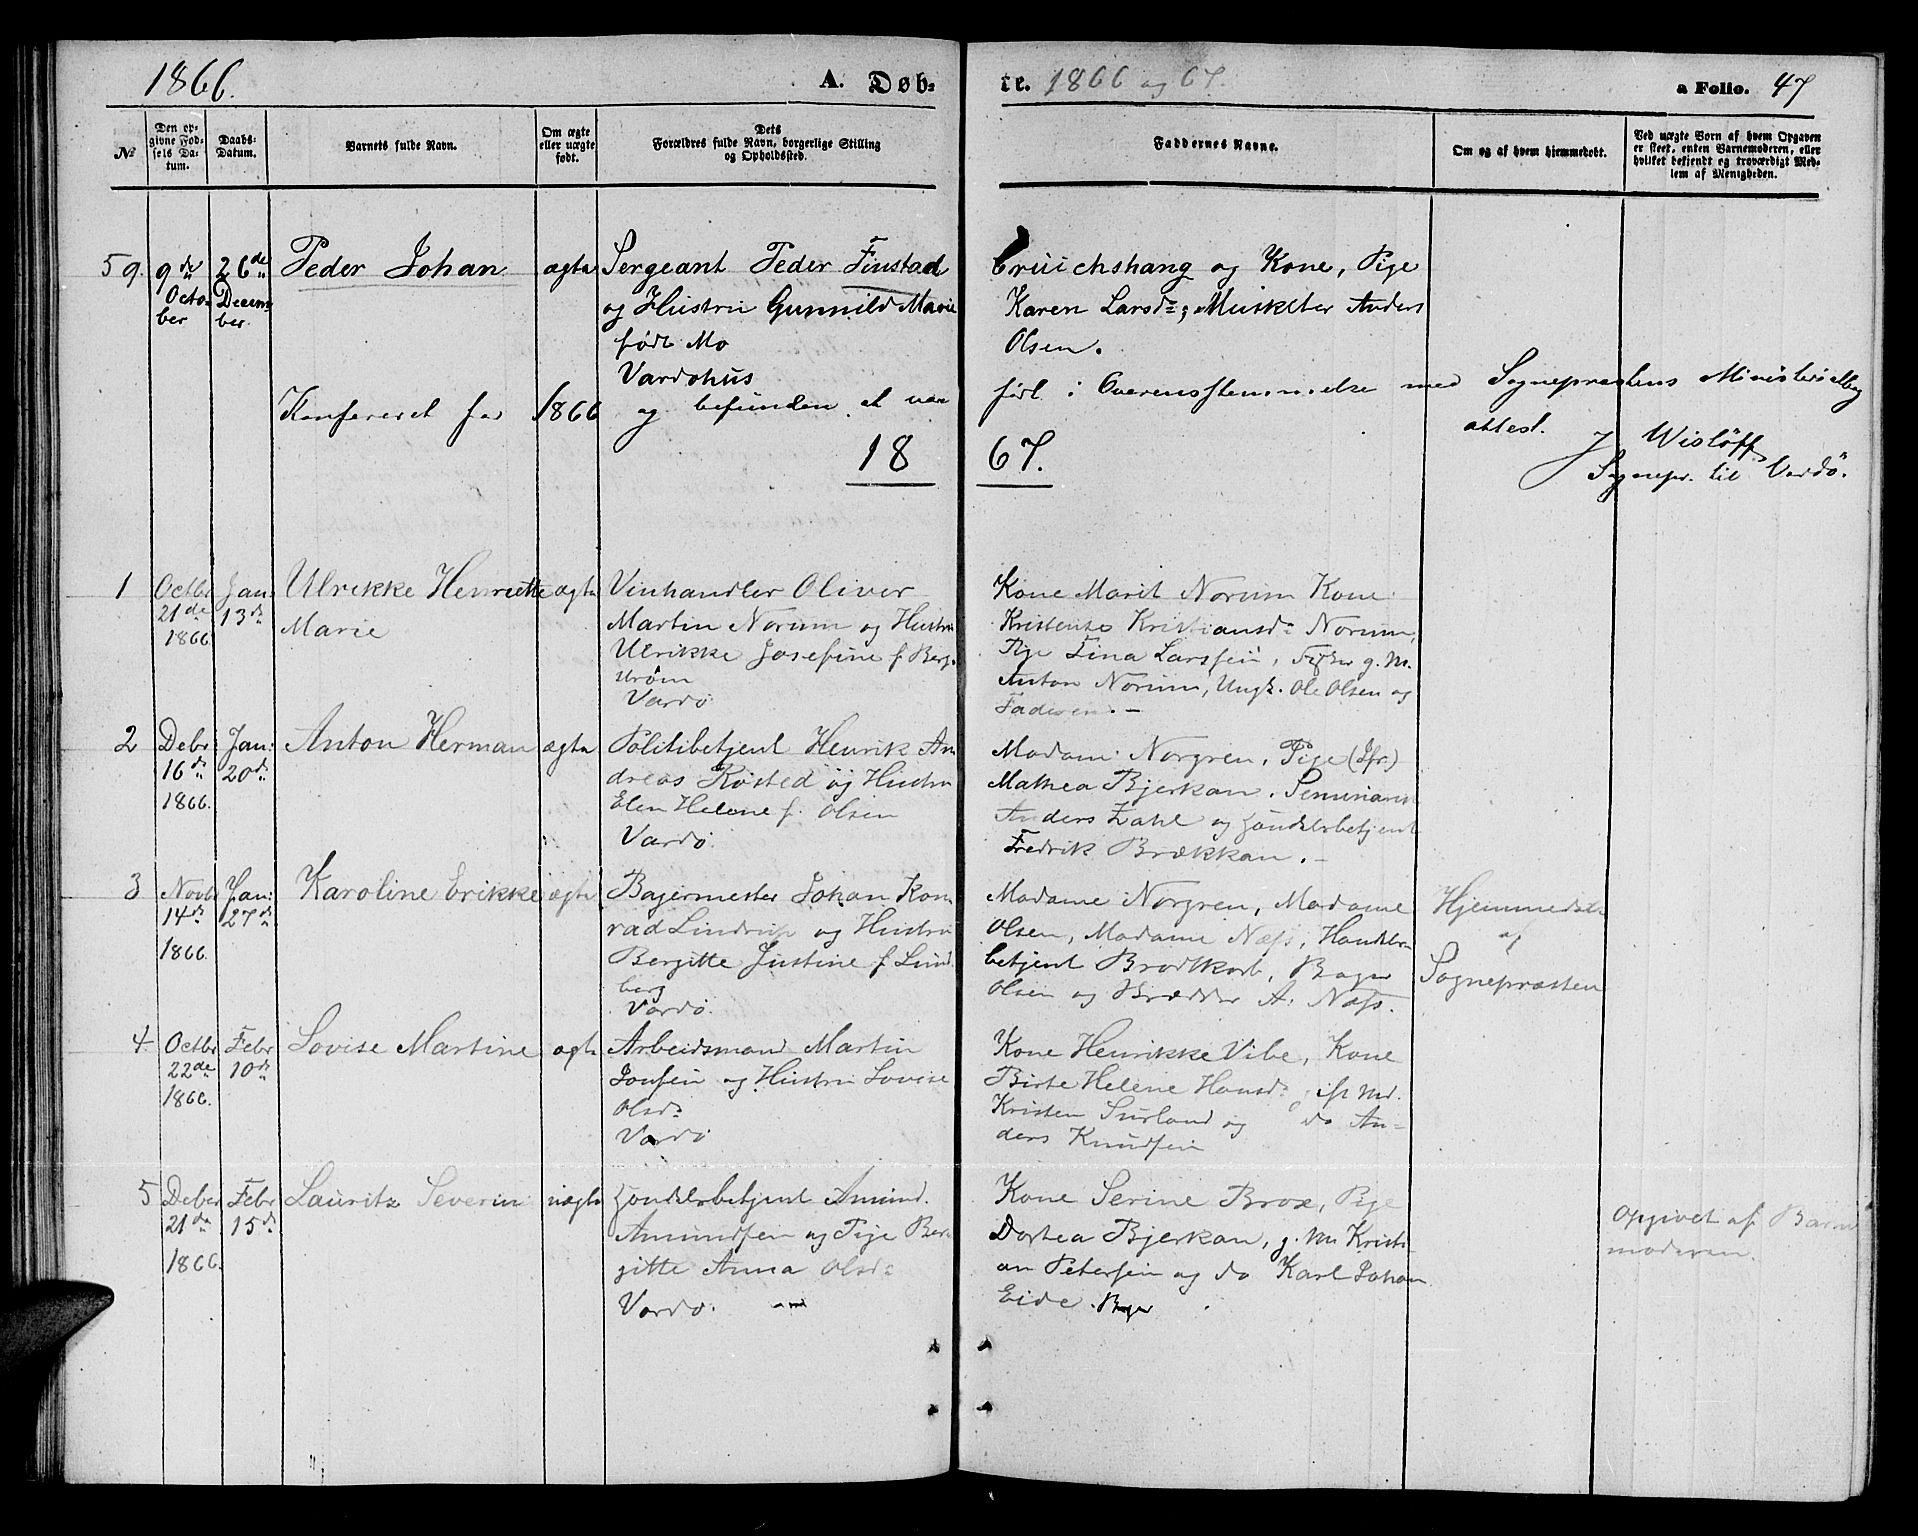 1866.
A. Døb-
te. 1866 og 67.
a Folio. 47
№
Den op-
givne Fød-
sels Da-
tum.
Daabs-
Datum.
Barnets fulde Navn.
Om ægte
eller uægte
født.
Dets
Forældres fulde Navn, borgerlige Stilling
og Opholdssted.
Faddernes Navne.
Om og af hvem hjemmedøbt.
Ved uægte Børn af hvem Opgaven
er skeet, enten Barnemoderen, eller
hvilket bekjendt og troværdigt Med-
lem af Menigheden.
59.
9de
Octo-
ber
26de
Decem-
ber.
Peder Johan
ægte
Sergeant Peder Finstad
og Hustru Gunnild Marie
født Mo
Vardøhus
og Kone, Pige
Karen Larsd; Musketer Anders
Olsen.
Konfereret for 1866 og befunden at være
ført i Overensstemmelse med Sognepræstens Ministerialbog
attest.
J Wisløff
Sognepr. til Vardö.
18 67.
1
Octbr
21de
1866
Jan:
13de
Ulrikke Henriette
Marie
ægte
Vinhandler Oliver
Martin Norum og Hustru
Ulrikke Josefine f. Berg-
strøm
Vardø
Kone Marit Norum Kone
Kristense Kristiansd Norum,
Pige Lina Larssen, Fisker g. M.
Anton Norum, Ungk. Ole Olsen og
Faderen. –
2
Debr
16de
1866.
Jan:
20de
Anton Herman
ægte
Politibetjent Henrik An-
dreas Røsted og Hustru
Elen Helene f. Olsen
Vardø.
Madam Norgren, Pige (Jfr.)
Mathea Bjerkan, Seminarist
Anders Zahl og Handelsbetjent
Fredrik Brækkan. –
3
Novbr
14de
1866.
Jan:
27de
Karoline Erikke
ægte
Bagermester Johan Kon-
rad Lindrup og Hustru
Bergitte Justine f Lund-
berg
Vardø.
Madame Norgren, Madame
Olsen, Madame Næss, Handels-
betjent Brodtkorb, Bager
Olsen og A. Næss.
Hjemmedøbt
af
Sognepræsten
4.
Octbr
22de
1866.
Febr
10de
Lovise Martine
ægte
Arbeidsmand Martin
Jonsen og Hustru Lovise
Olsd
Vardø
Kone Henrikke Vibe, Kone
Birte Helene Hansd
Kristen Surland og do An-
ders Knudsen
5
Deber
21de
1866.
Febr
15de
Lauritz Severin
uægte
Handelsbetjent Amund
Amundsen og Pige Ber-
gitte Anna Olsd
Vardø.
Kone Serine Brox, Pige
Dortea Bjerkan, g. M. Kristi-
an Petersen og do Karl Johan
Eide. Bager
Opgivet af Barne
moderen.